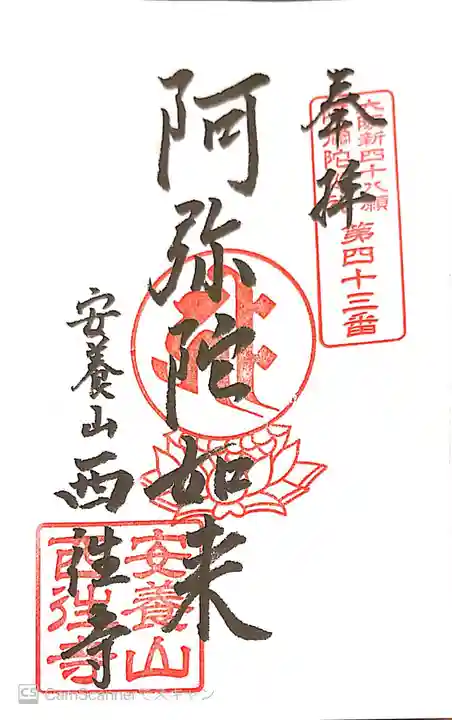 奉拝
大阪新四十八願
阿弥陀巡礼
第四十三番
阿弥陀如来
安養山西往寺
安養山
西往寺
CS CamScannerでスキャン